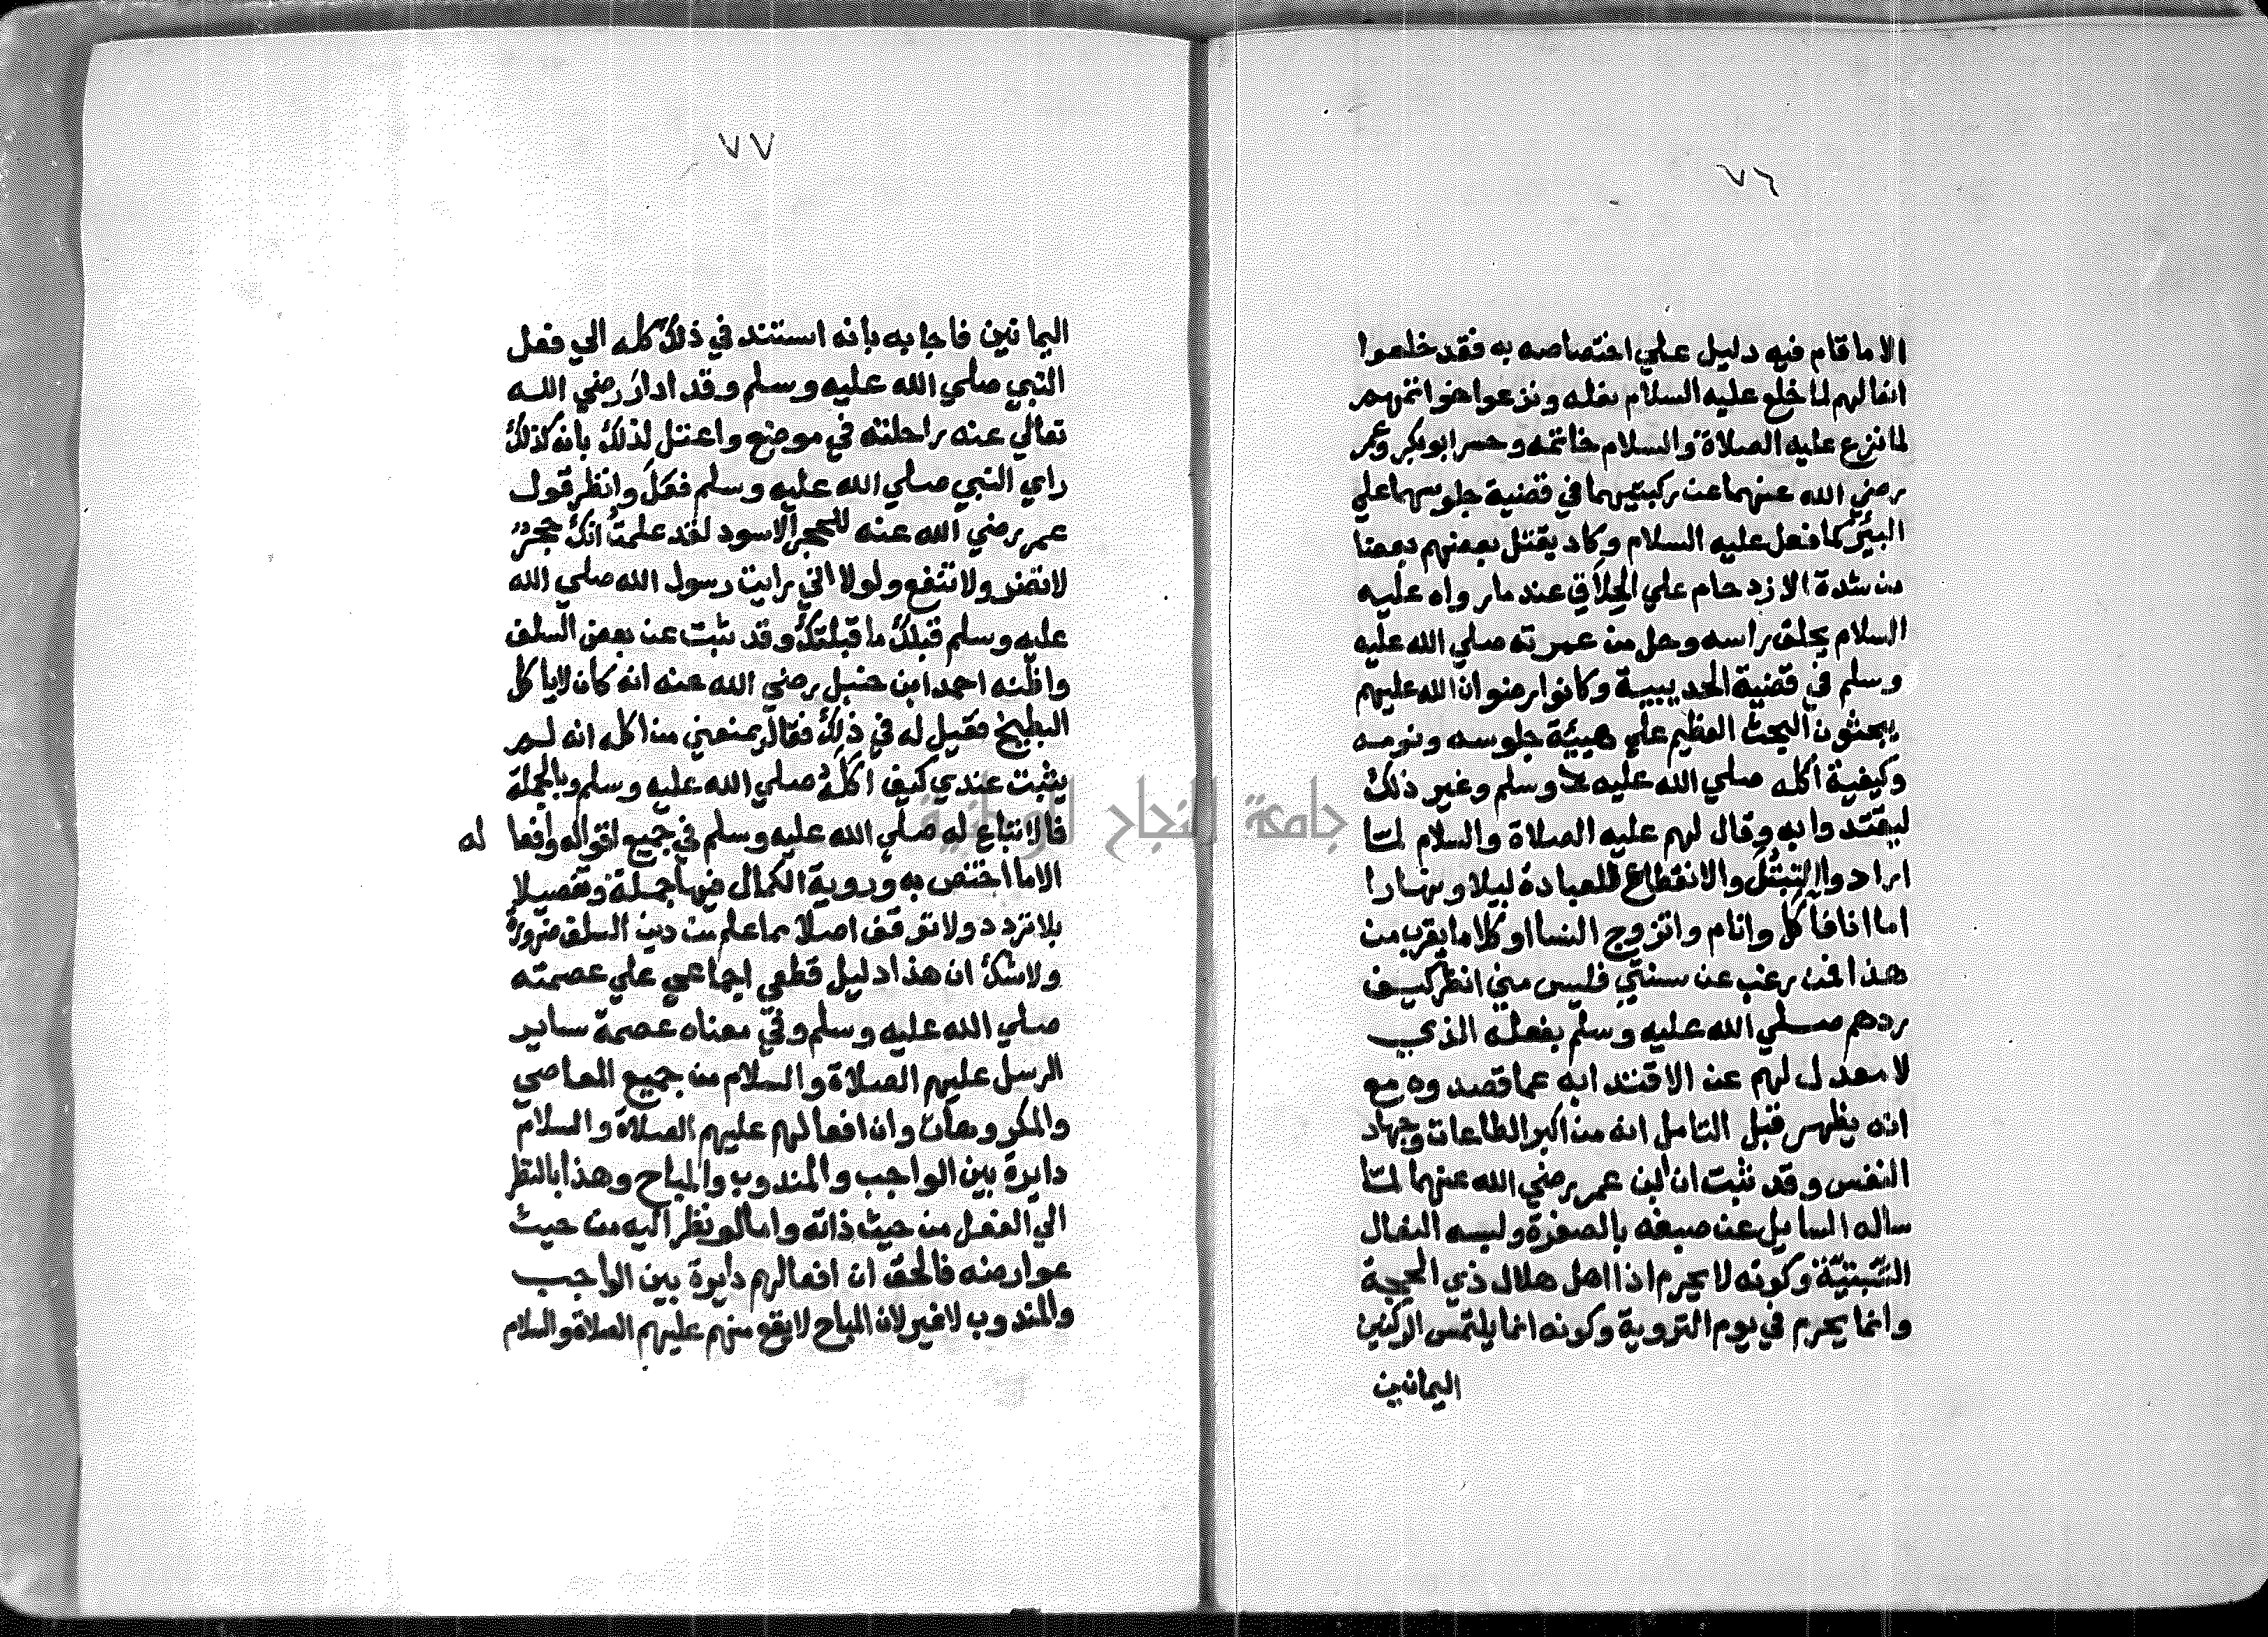 ٧٦
الا ما قام فيه دليل علي اختصاصه به فقد خلعوا
انعالهم لما خلع عليه السلام نعله ونزعوا خواتمهم
لما نزع عليه الصلاة والسلام خاتمه وحسر ابو بكر وعمر
رضي الله عنهما عن ركبتيهما في قضية جلوسهما علي
البئر كما فعل عليه السلام وكاد يقتل بعضهم بعضا
من شدة الازدحام علي الحلاق عند ما راوه عليه
السلام يحلق راسه وحل من عمرته صلي الله عليه
وسلم في قضية الحديبية وكانوا رضوان الله عليهم
يبحثون البحث العظيم علي هيئة جلوسه ونومه
وكيفية اكله صلي الله عليه وسلم وغير ذلك
ليقتدوا به وقال لهم عليه الصلاة والسلام لما
ارادوا التبتل والانقطاع للعبادة ليلا ونهارا
اما انا فاكل وانام واتزوج النسا او كلاما يقرب من
هذا فمن رغب عن سنتي فليس مني انظر كيف
ردهم صلي الله عليه وسلم بفعله الذي
لا معدل لهم عن الاقتدا به عما قصدوه مع
انه يظهر قبل التامل انه من اكبر الطاعات وجهاد
النفس وقد ثبت ان ابن عمر رضي الله عنهما لما
ساله السايل عن صبغه بالصفرة ولبسه النعال
السبتية وكونه لا يحرم اذا اهل هلال ذي الحجة
وانما يحرم في يوم التروية وكونه انما يلتمس الركنين
اليمانين
٧٧
اليمانين فاجابه بانه استند في ذلك كله الي فعل
النبي صلي الله عليه وسلم وقد ادار رضي الله
تعالي عنه راحلته في موضع واعتل لذلك بانه كذلك
راي النبي صلي الله عليه وسلم فعل وانظر قول
عمر رضي الله عنه للحجر الاسود لقد علمت انك حجر
لا تضر ولا تنفع ولولا اني رايت رسول الله صلي الله
عليه وسلم قبلك ما قبلتك وقد ثبت عن بعض السلف
واظنه احمد ابن حنبل رضي الله عنه انه كان لا ياكل
البطيخ فقيل له في ذلك فقال يمنعني من اكله انه لم
يثبت عندي كيف اكله صلي الله عليه وسلم وبالجملة
فالاتباع له صلي الله عليه وسلم في جميع اقواله وافعا له
الا ما اختص به وروية الكمال فيها جملة وتفصيلا
بلا تردد ولا توقف اصلا مما علم من دين السلف ضرورة
ولا شك ان هذا دليل قطعي اجماعي علي عصمته
صلي الله عليه وسلم وفي معناه عصمة ساير
الرسل عليهم الصلاة والسلام من جميع المعاصي
والمكروهات وان افعالهم عليهم الصلاة والسلام
دايرة بين الواجب والمندوب والمباح وهذا بالنظر
الي الفعل من حيث ذاته واما لو نظر اليه من حيث
عوارضه فالحق ان افعالهم دايرة بين الواجب
والمندوب لا غير لان المباح لا يقع منهم عليهم الصلاة والسلام
جامعة النجاح الوطنية